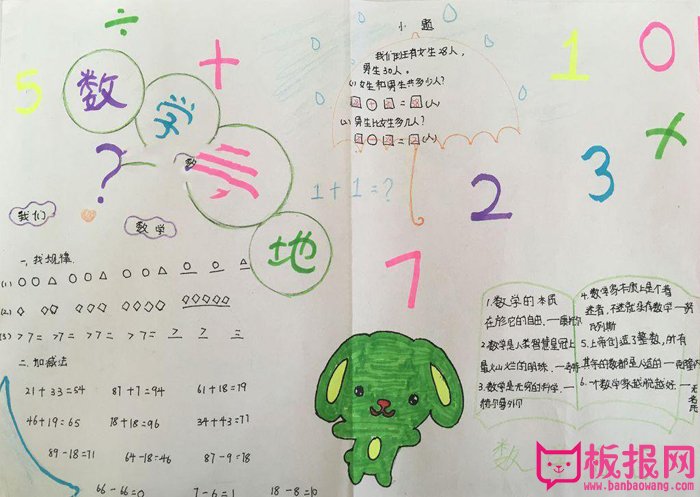 ÷
+
5
数
学
?
地
1+1=?
1
0
×
2
3
7
小题
我们班有女生28人,
男生30人。
(1)女生和男生共多少人?
(人)
(2)男生比女生多几人?
(人)
我们
数学
一、找规律
(1) ○○△ ○○△ ○○△ ○ ○ △
(3) >7= >7= >7= > 7 =
二、加减法
21+33=54
87+7=94
61+18=79
46+19=65
18+18=96
34+43=77
89-18=71
64-18=46
87-9=78
66-66=0
7-6=1
18-8=10
1.数学的本质
在於它的自由.
2.数学是人类智慧皇冠上
最灿烂的明珠.
3.数学是无穷的科学.
4.数学家本质上是个着
迷者,不迷就没有数学
5.上帝创造了整数,所有
其余的数都是人造的
6.一个数学家越超脱越好.
无名氏
数
板报网
www.banbaowang.com